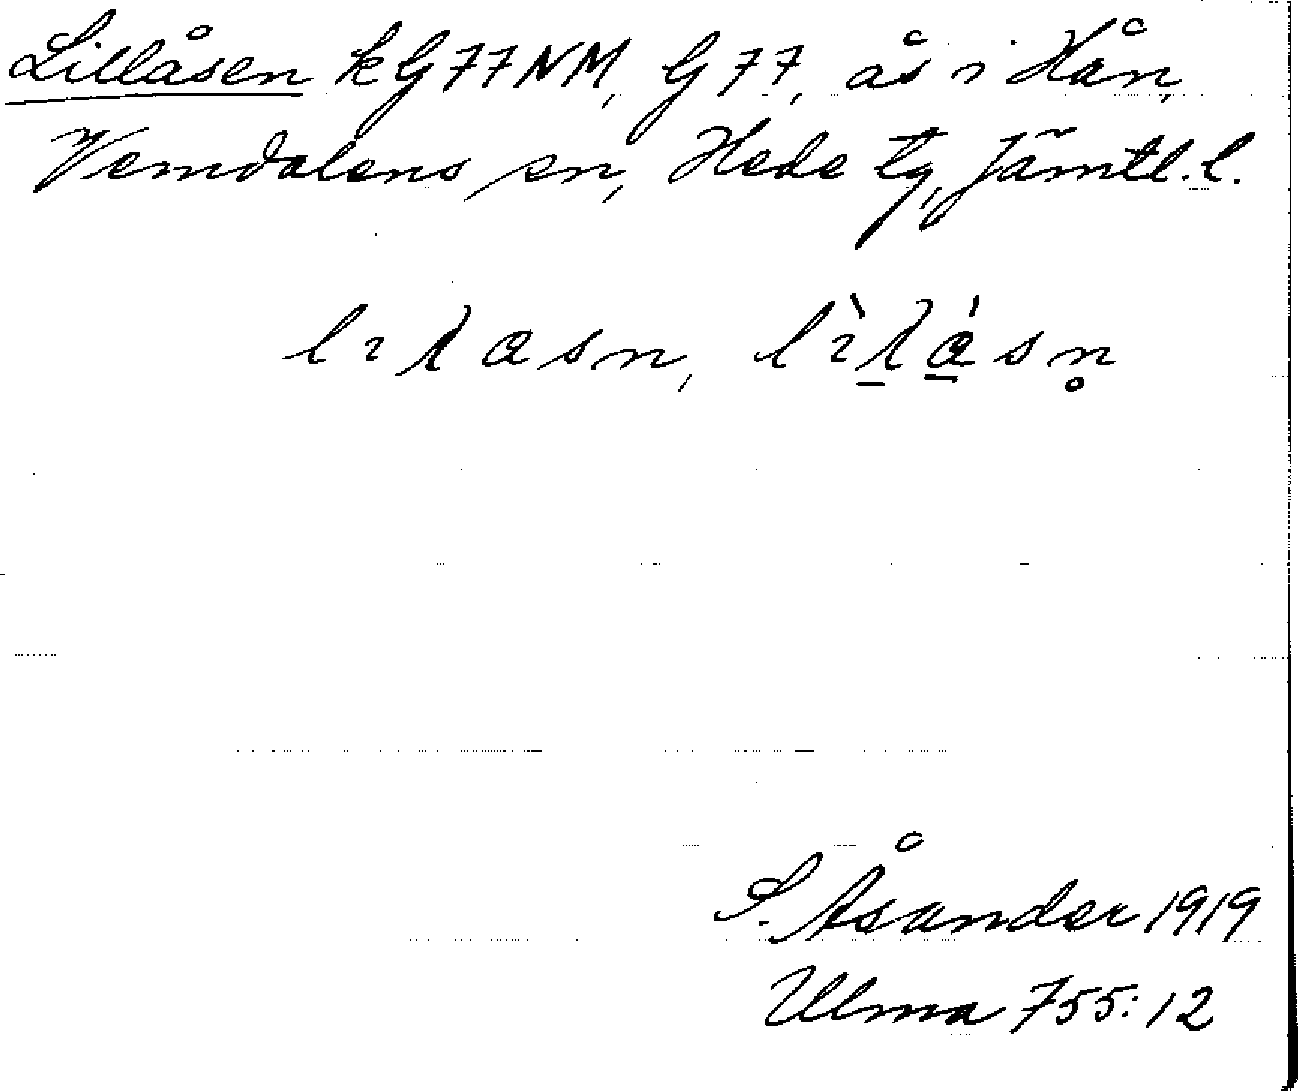 Lillåsen kG77NM, G77, ås i Hån,
Vemdalens sn, Hede tg, Jämtl. l.
S. Åsander 1919
Ulma 755:12